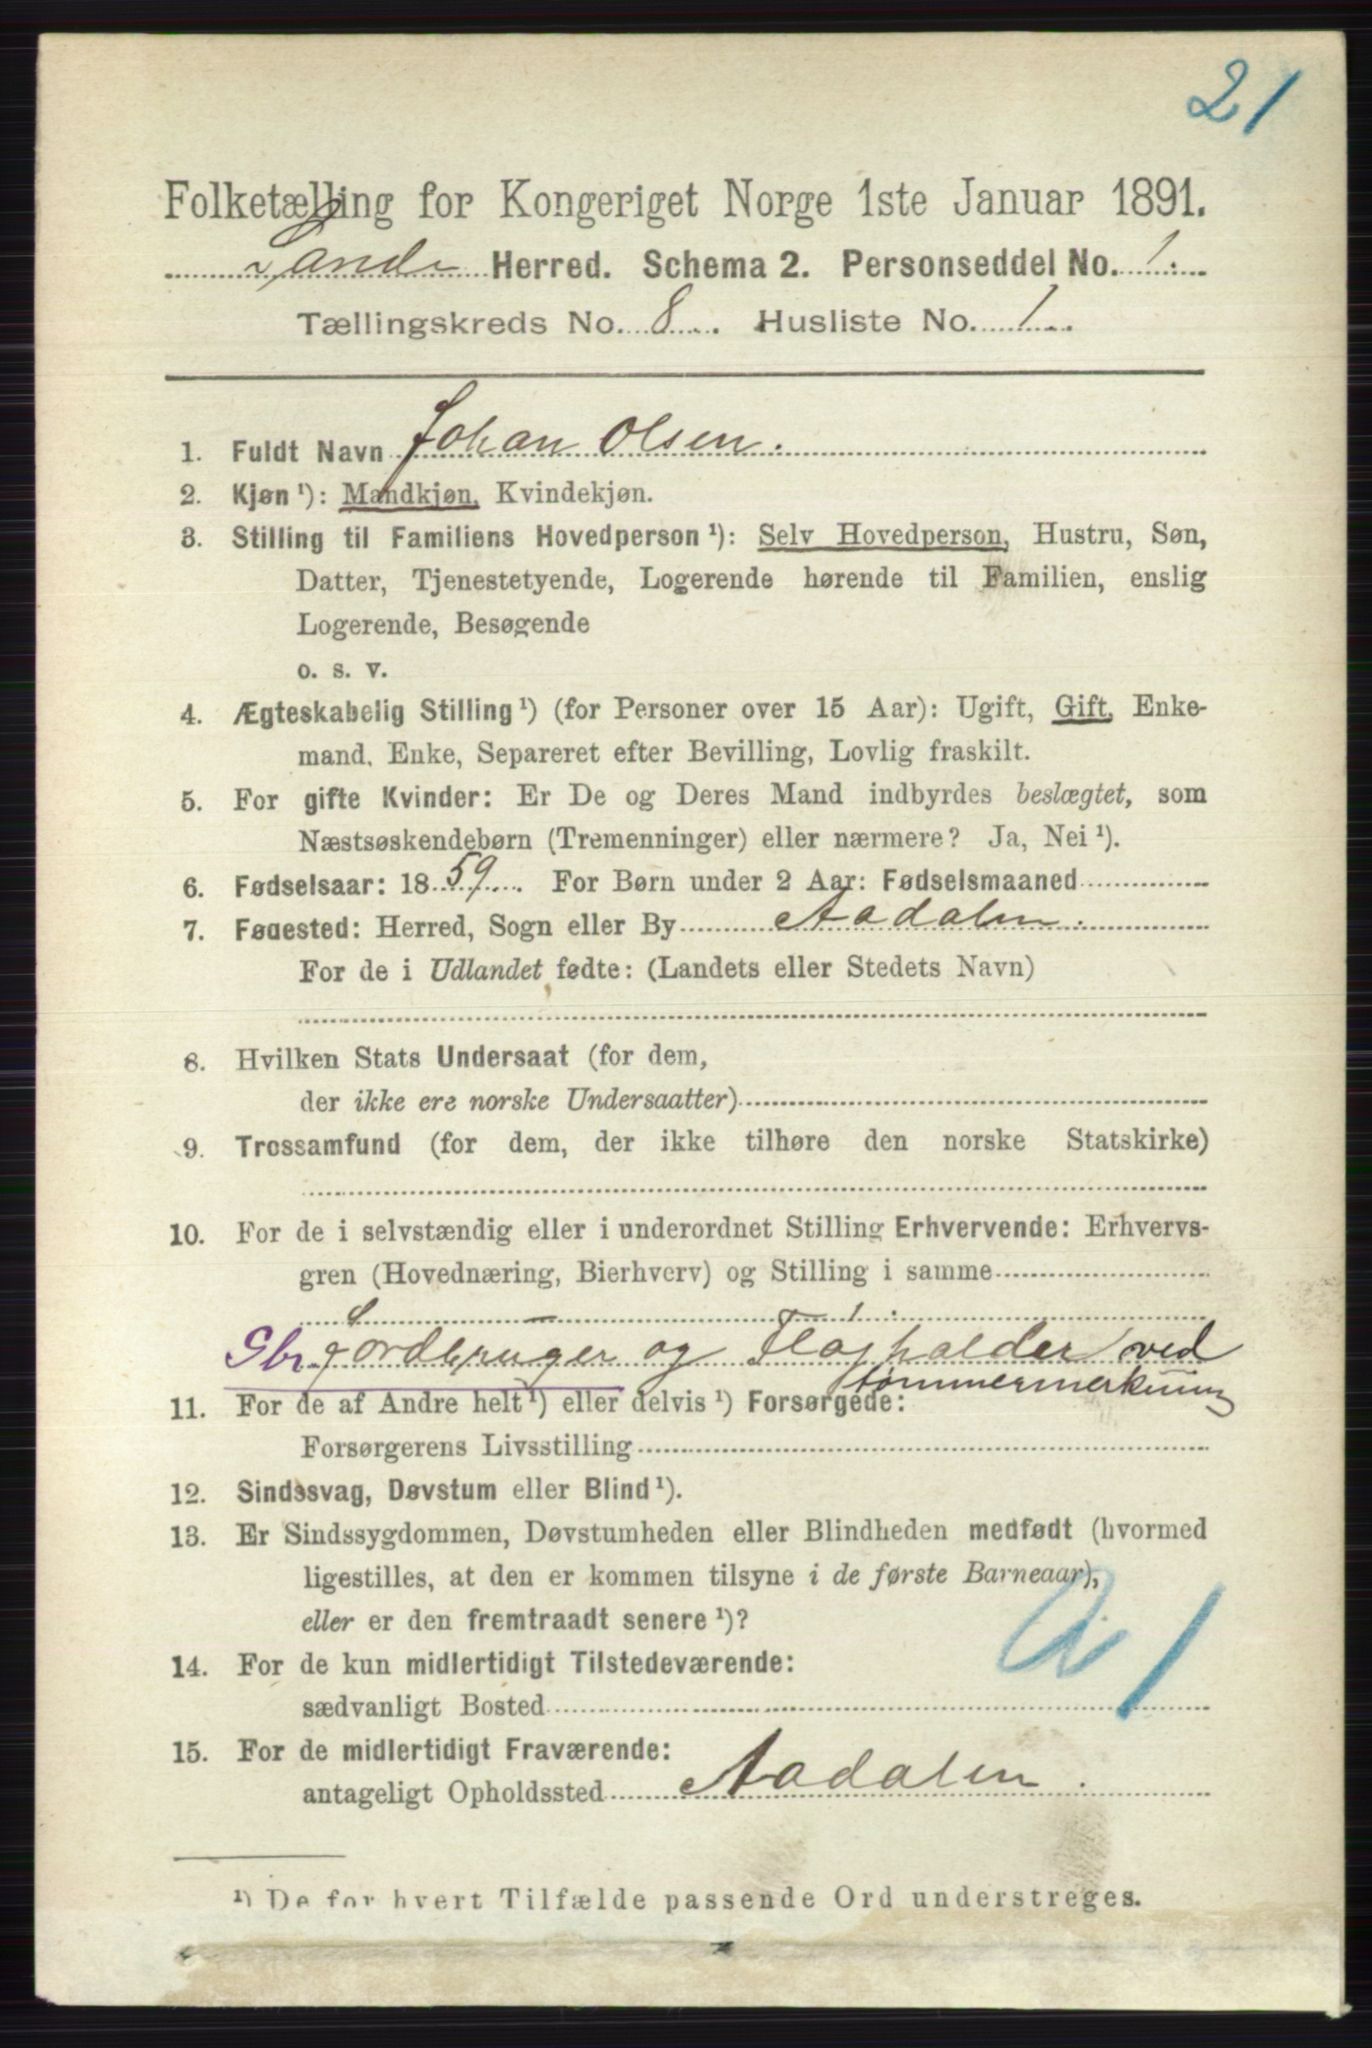 21
Folketælling for Kongeriget Norge 1ste Januar 1891.
Sande Herred. Schema 2. Personseddel No. 1.
Tællingskreds No. 8. Husliste No. 1.
1. Fuldt Navn Johan Olsen.
2. Kjøn ¹): Mandkjøn, Kvindekjøn.
3. Stilling til Familiens Hovedperson ¹): Selv Hovedperson, Hustru, Søn,
Datter, Tjenestetyende, Logerende hørende til Familien, enslig
Logerende, Besøgende
o. s. v.
4. Ægteskabelig Stilling ¹) (for Personer over 15 Aar): Ugift, Gift, Enke-
mand, Enke, Separeret efter Bevilling, Lovlig fraskilt.
5. For gifte Kvinder: Er De og Deres Mand indbyrdes beslægtet, som
Næstsøskendebørn (Tremenninger) eller nærmere? Ja, Nei ¹).
6. Fødselsaar: 1859. For Børn under 2 Aar: Fødselsmaaned
7. Fødested: Herred, Sogn eller By Aadalen.
For de i Udlandet fødte: (Landets eller Stedets Navn)
8. Hvilken Stats Undersaat (for dem,
der ikke ere norske Undersaatter)
9. Trossamfund (for dem, der ikke tilhøre den norske Statskirke)
10. For de i selvstændig eller i underordnet Stilling Erhvervende: Erhvervs-
gren (Hovednæring, Bierhverv) og Stilling i samme
Gbr. jordbruger og Flojhalder ved
tømmermerkning
11. For de af Andre helt ¹) eller delvis ¹) Forsørgede:
Forsørgerens Livsstilling
12. Sindssvag, Døvstum eller Blind ¹).
13. Er Sindssygdommen, Døvstumheden eller Blindheden medfødt (hvormed
ligestilles, at den er kommen tilsyne i de første Barneaar),
eller er den fremtraadt senere ¹)?
14. For de kun midlertidigt Tilstedeværende:
sædvanligt Bosted
15. For de midlertidigt Fraværende:
antageligt Opholdssted Aadalen.
¹) De for hvert Tilfælde passende Ord understreges.